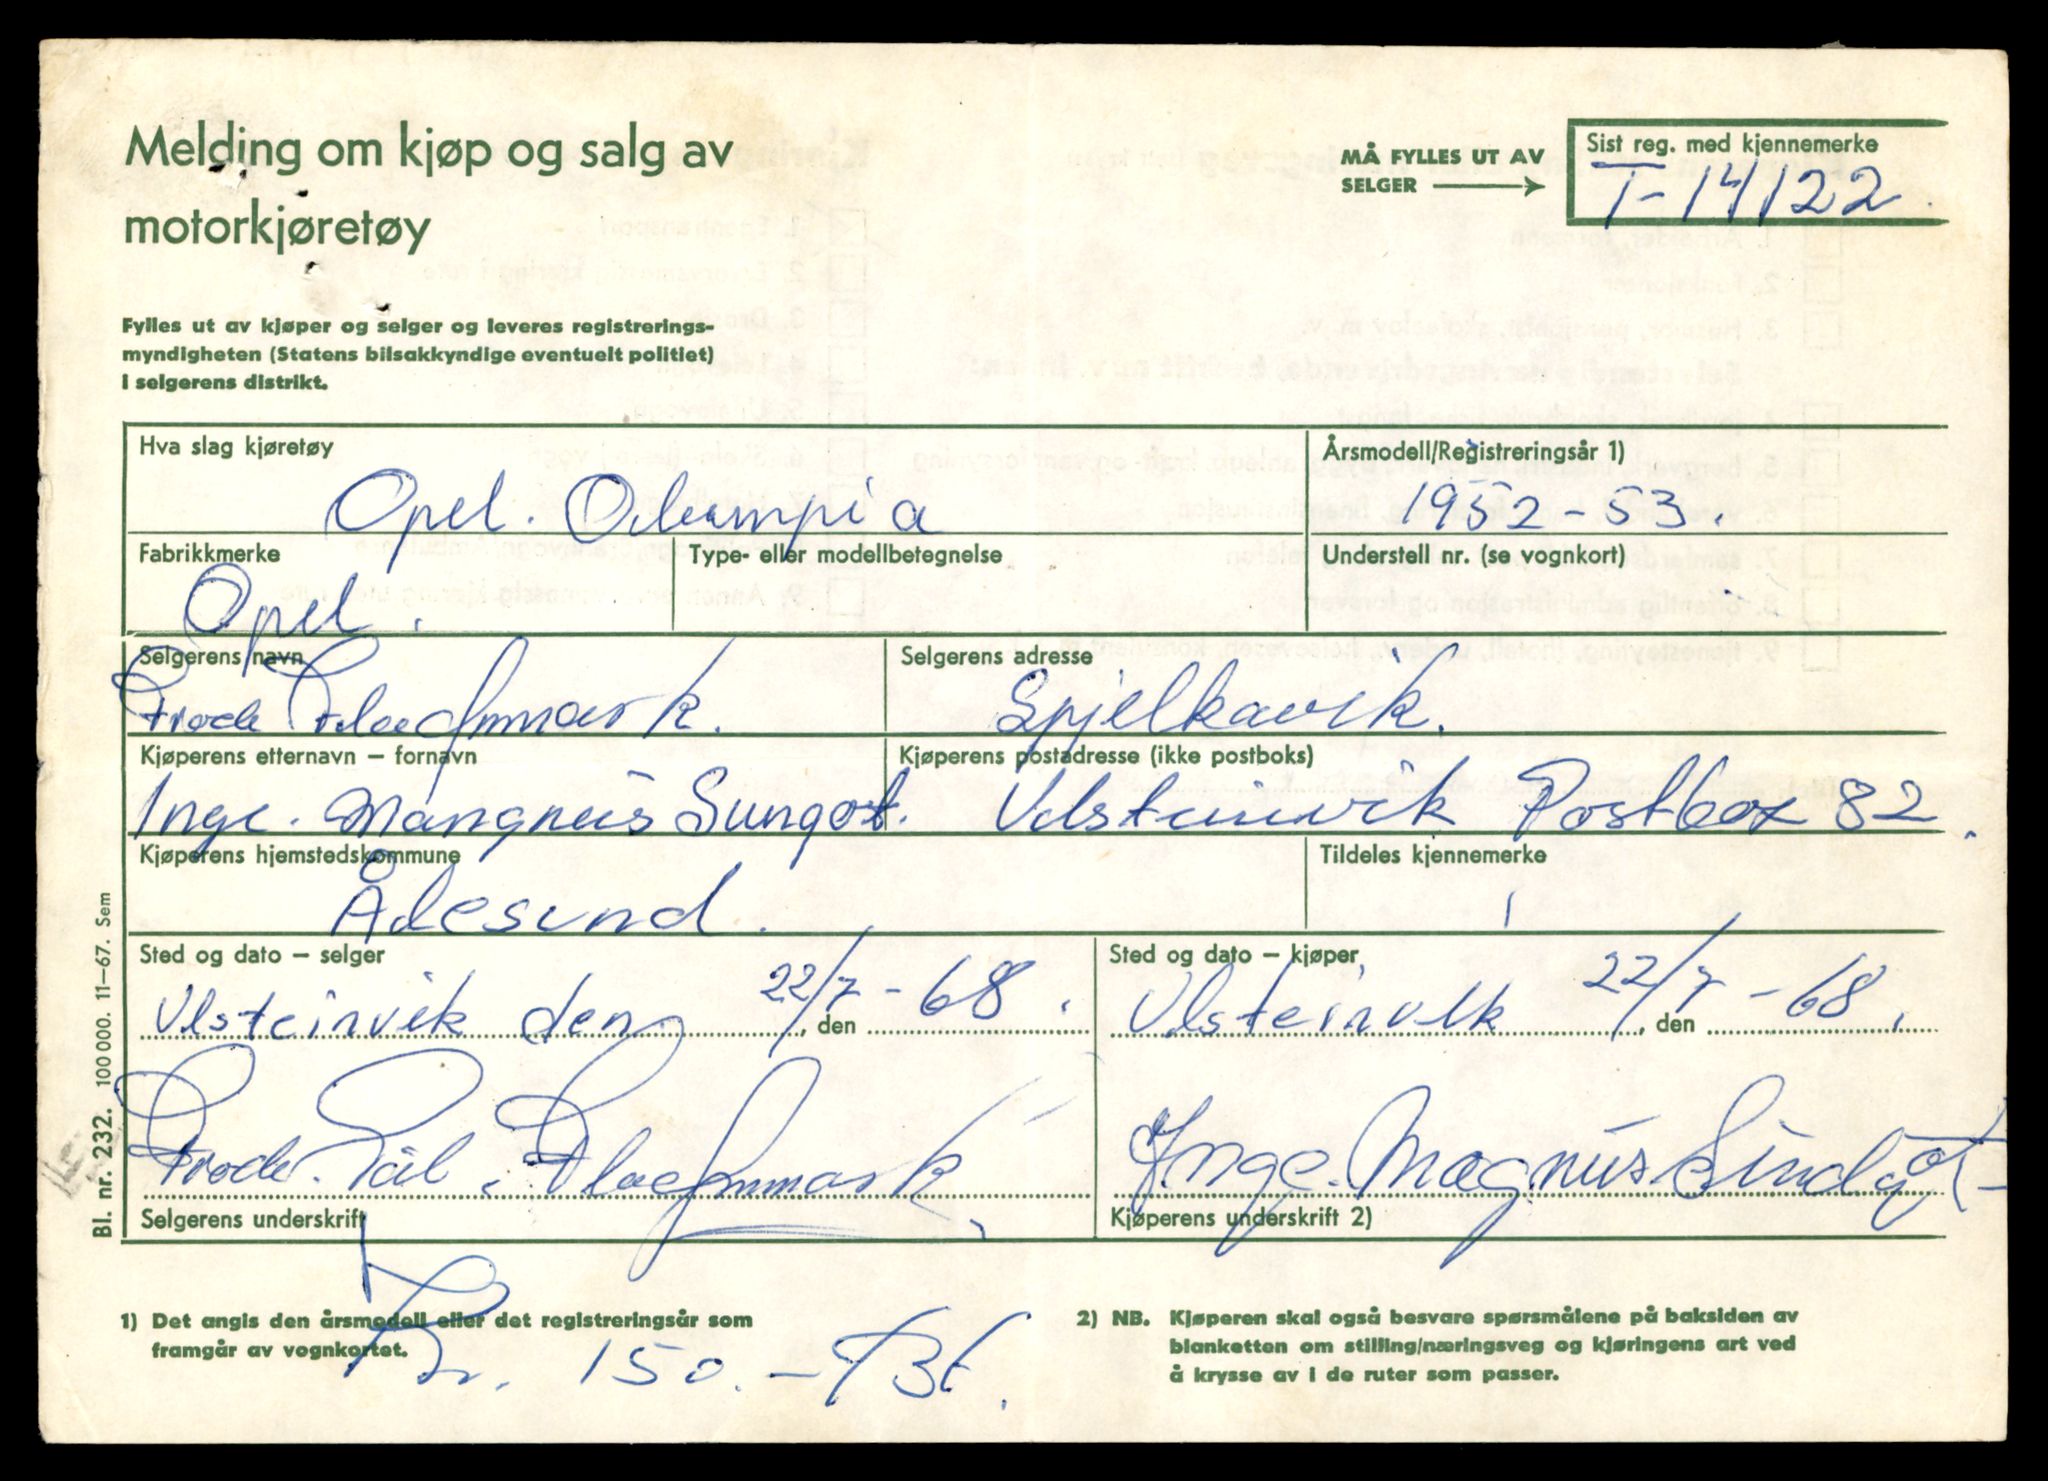 Melding om kjøp og salg av
motorkjøretøy
MÅ FYLLES UT AV
SELGER
Sist reg. med kjennemerke
T-14122
Fylles ut av kjøper og selger og leveres registrerings-
myndigheten (Statens bilsakkyndige eventuelt politiet)
i selgerens distrikt.
Hva slag kjøretøy
Opel. Olumpia
Årsmodell/Registreringsår 1)
1952-53.
Fabrikkmerke
Opel.
Type- eller modellbetegnelse
Understell nr. (se vognkort)
Selgerens navn
Frode Flaemmark.
Selgerens adresse
Spjelkavik.
Kjøperens etternavn – fornavn
Inge. Mangnus
Kjøperens postadresse (ikke postboks)
Ulsteinvik Postbox 82.
Kjøperens hjemstedskommune
Ålesund.
Tildeles kjennemerke
Sted og dato – selger
Ulsteinvik den 22/7 , den -68.
Sted og dato – kjøper
Ulsteinvik 22/7 , den -68.
Frode. Pål. Flaemmark
Selgerens underskrift
Inge. Magnus
Kjøperens underskrift 2)
Bl. nr. 232. 100 000. 11–67. Sem
1) Det angis den årsmodell eller det registreringsår som
framgår av vognkortet.
Kr. 150.-
2) NB. Kjøperen skal også besvare spørsmålene på baksiden av
blanketten om stilling/næringsveg og kjøringens art ved
å krysse av i de ruter som passer.